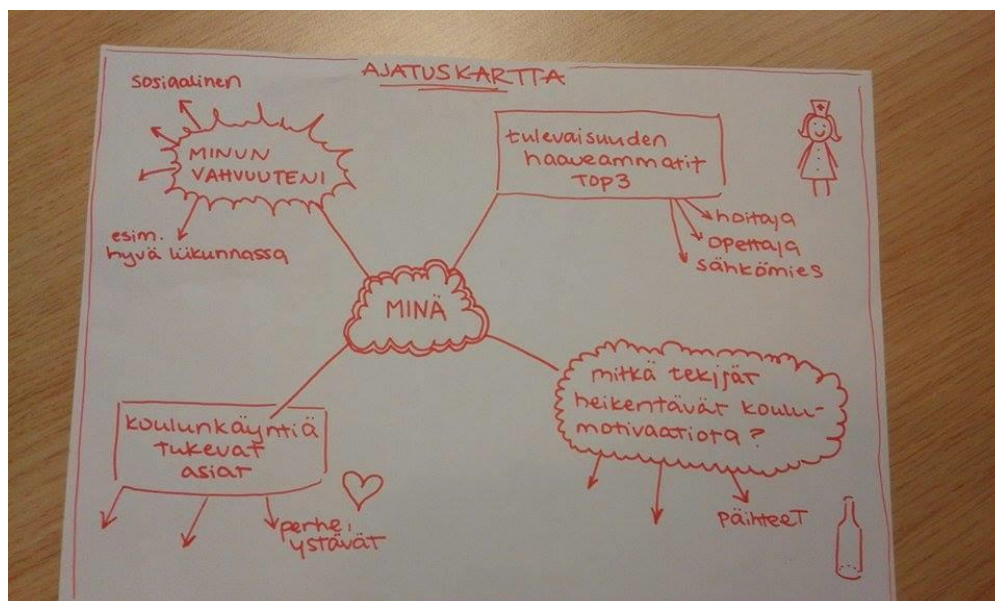 AJATUSKARTTA
sosiaalinen
MINUN
VAHVUUTENI
esim.
hyvä liikunnassa
tulevaisuuden
haaveammatit
TOP3
hoitaja
opettaja
sähkömies
MINÄ
koulunkäyntiä
tukevat
asiat
perhe,
ystävät
mitkä tekijät
heikentävät koulu-
motivaatiota?
päihteet